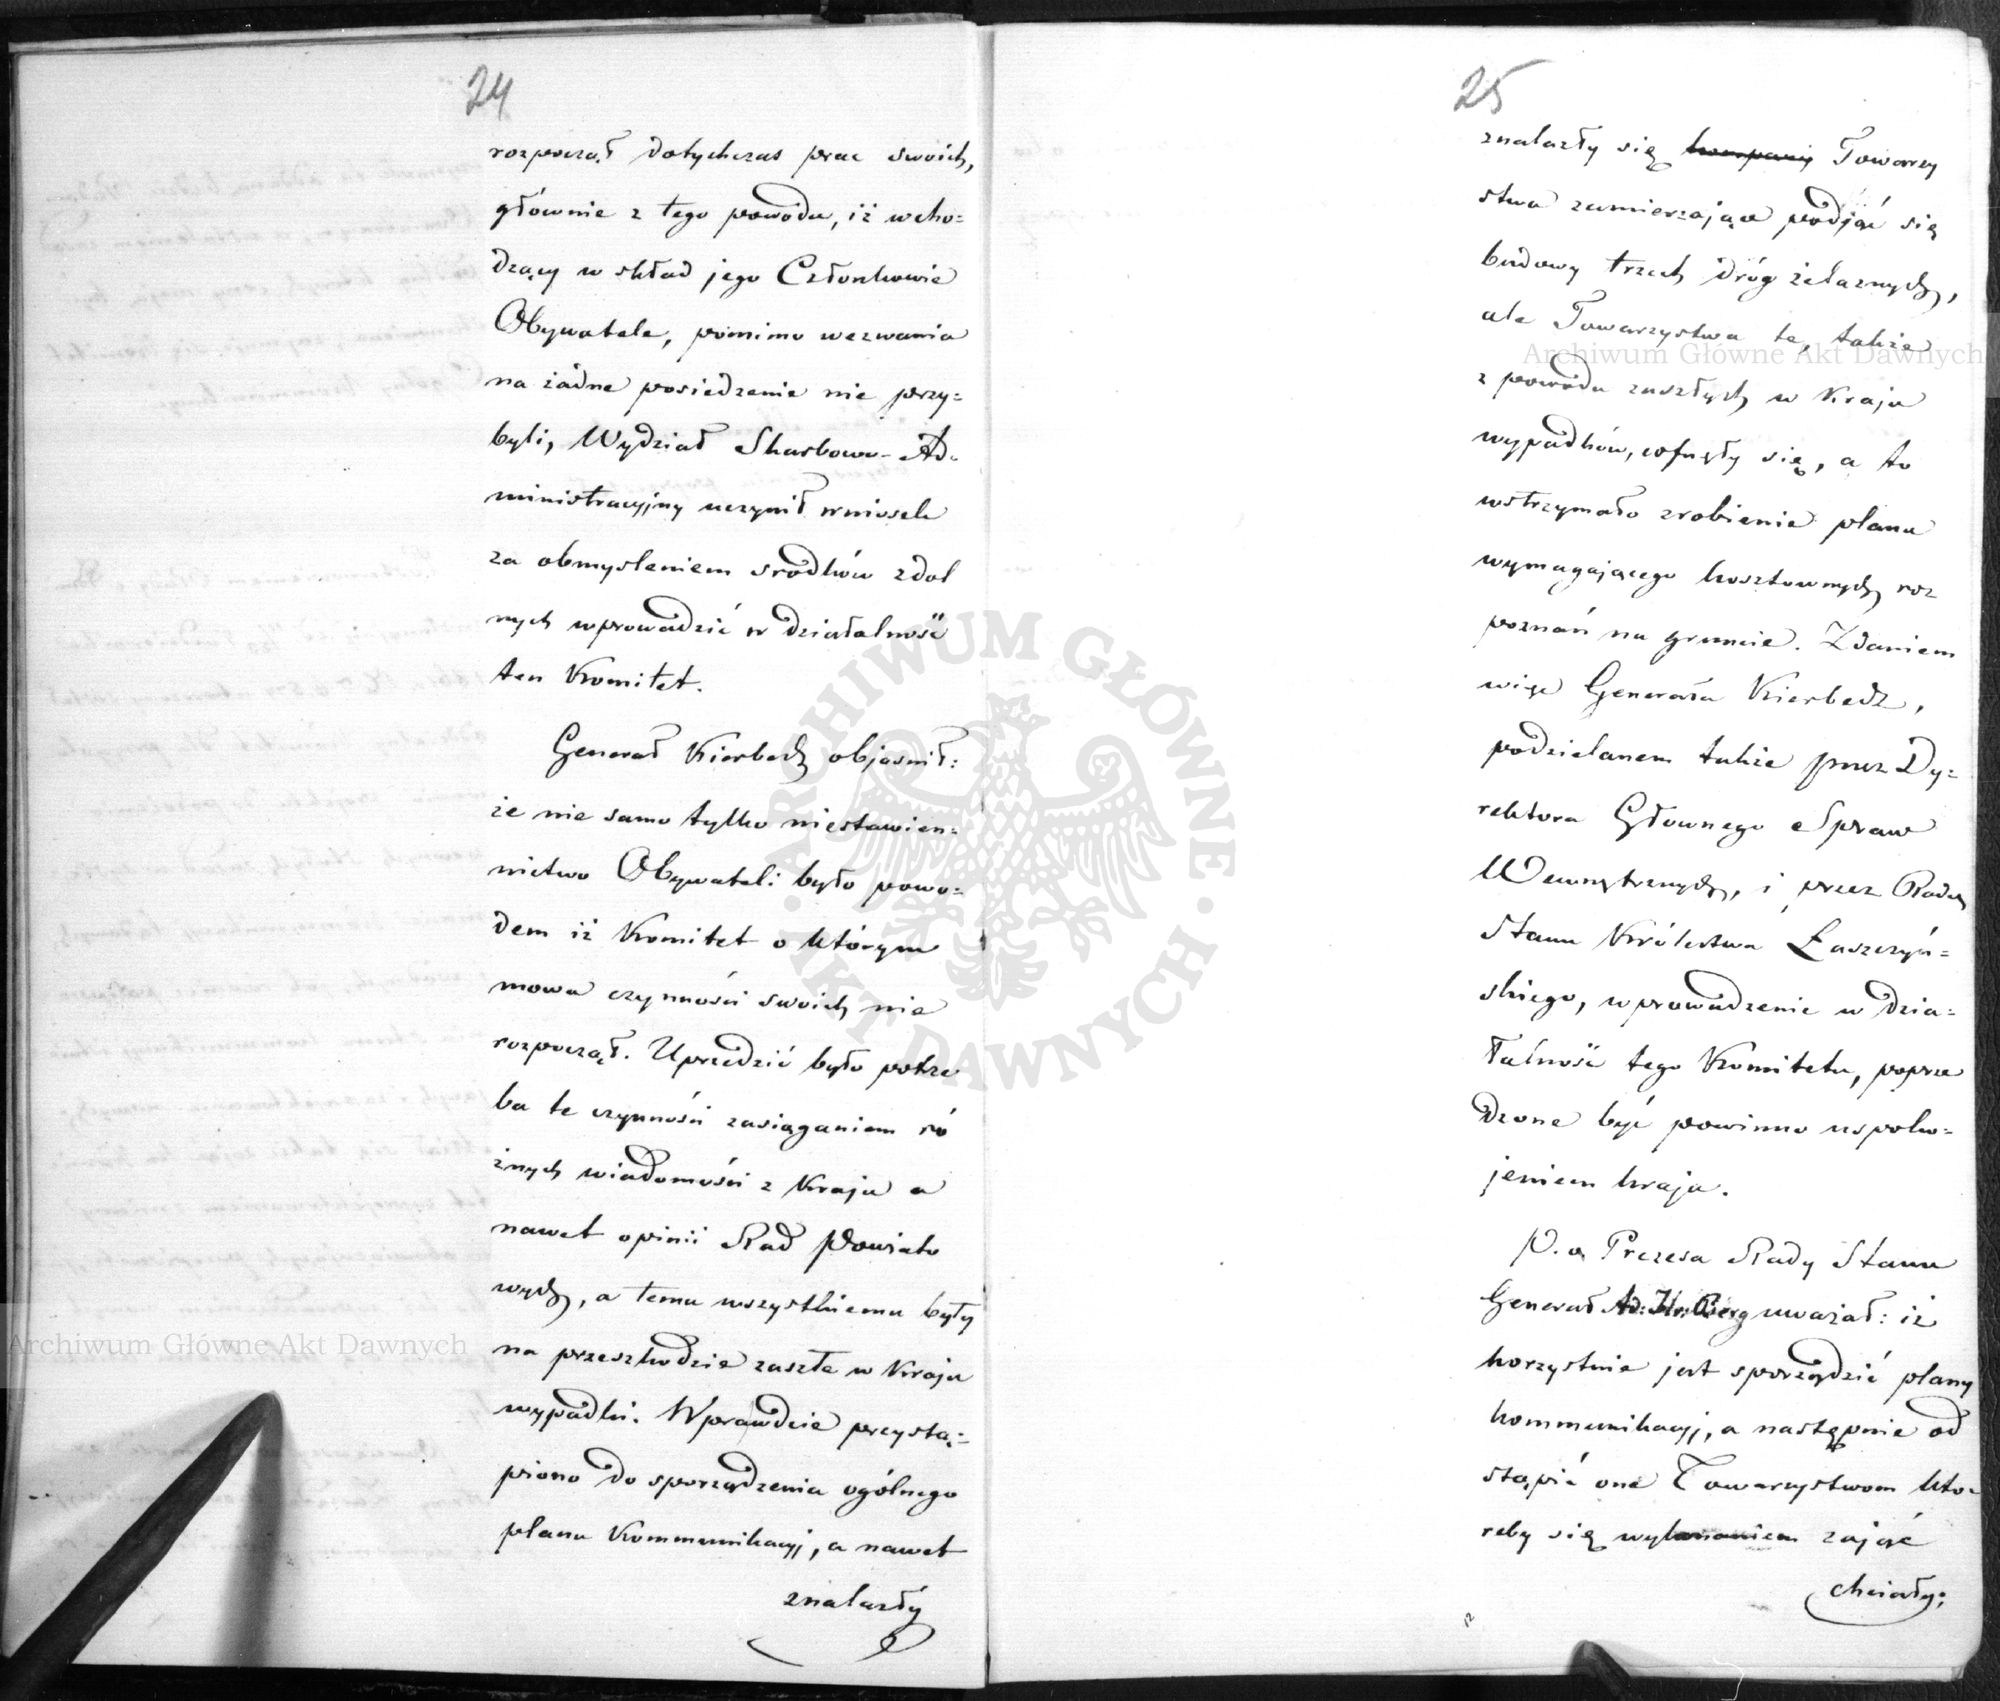 24
rozpoczął dotychczas prac swoich,
głównie z tego powodu, iż wcho-
dzący w skład jego Członkowie
Obywatele, pomimo wezwania
na żadne posiedzenie nie przy-
byli, Wydział Skarbowo-Ad-
ministracyjny uczynił wniosek
za obmysleniem srodków zdol
nych wprowadzić w działalność
ten Komitet.
Generał Kierbedź objasnił:
że nie samo tylko niestawien-
nictwo Obywateli było powo-
dem iż Komitet o którym
mowa czynności swoich nie
rozpoczął. Uprzedzić było potrze
ba te czynności zasiąganiem ró
żnych wiadomości z Kraju a
nawet opinii Rad Powiato
wych, a temu wszystkiemu były
na przeszkodzie zaszłe w Kraju
wypadki. Wprawdzie przystą-
piono do sporządzenia ogólnego
planu Kommunikacyj, a nawet
znalazły
25
znalazły się kompanij Towarzy
stwa zamierzające podjąć się
budowy trzech dróg żelaznych,
ale Towarzystwa te, także
z powodu zaszłych w Kraju
wypadków, cofnęły się, a to
wstrzymało zrobienie planu
wymagającego kosztownych roz
poznań na gruncie. Zdaniem
więc Generała Kierbedź,
podzielanem także przez Dy-
rektora Głównego Spraw
Wewnętrznych, i przez Radcę
Stanu Królestwa Łaszczyń-
skiego, wprowadzenie w dzia-
łalność tego Komitetu, poprze
dzone być powinno uspoko-
jeniem kraju.
P. o. Prezesa Rady Stanu
Generał Ad: Hr: Berg uważał: iż
korzystnie jest sporządzić plany
kommunikacyj, a następnie od
stąpić one Towarzystwom któ-
reby się wykonaniem zająć
chciały;
ARCHIWUM GŁÓWNE AKT DAWNYCH
Archiwum Główne Akt Dawnych
Archiwum Główne Akt Dawnych